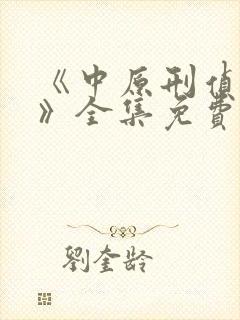 《中原刑侦
》全集免費
劉奎龄